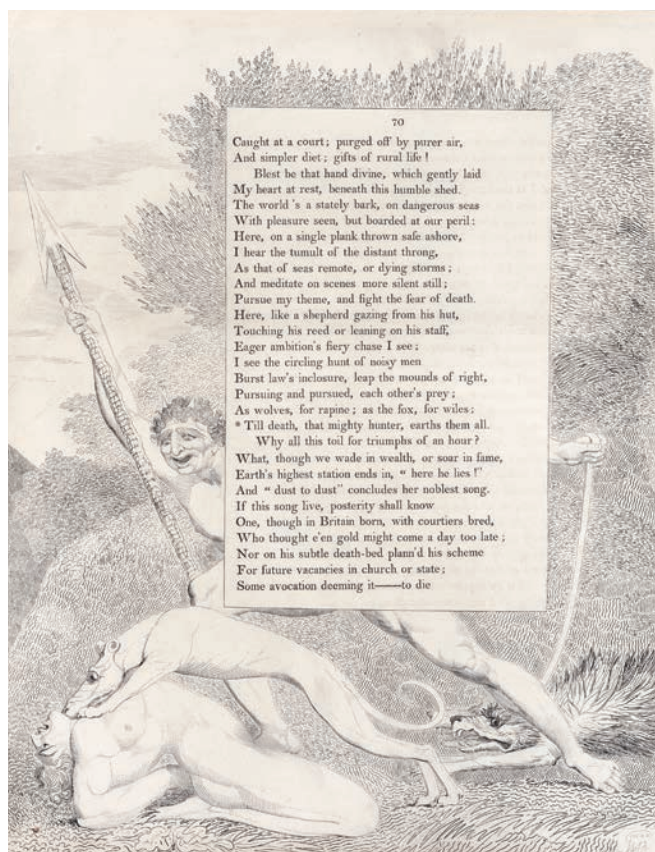 70
Caught at a court; purged off by purer air,
And simpler diet; gifts of rural life!
Blest be that hand divine, which gently laid
My heart at rest, beneath this humble shed.
The world 's a stately bark, on dangerous seas
With pleasure seen, but boarded at our peril:
Here, on a single plank thrown safe ashore,
I hear the tumult of the distant throng,
As that of seas remote, or dying storms;
And meditate on scenes more silent still;
Pursue my theme, and fight the fear of death.
Here, like a shepherd gazing from his hut,
Touching his reed or leaning on his staff,
Eager ambition's fiery chase I see;
I see the circling hunt of noisy men
Burst law's inclosure, leap the mounds of right,
Pursuing and pursued, each other's prey;
As wolves, for rapine; as the fox, for wiles;
* Till death, that mighty hunter, earths them all.
Why all this toil for triumphs of an hour?
What, though we wade in wealth, or soar in fame,
Earth's highest station ends in, “ here he lies!”
And “ dust to dust” concludes her noblest song.
If this song live, posterity shall know
One, though in Britain born, with courtiers bred,
Who thought e'en gold might come a day too late;
Nor on his subtle death-bed plann'd his scheme
For future vacancies in church or state;
Some avocation deeming it——to die